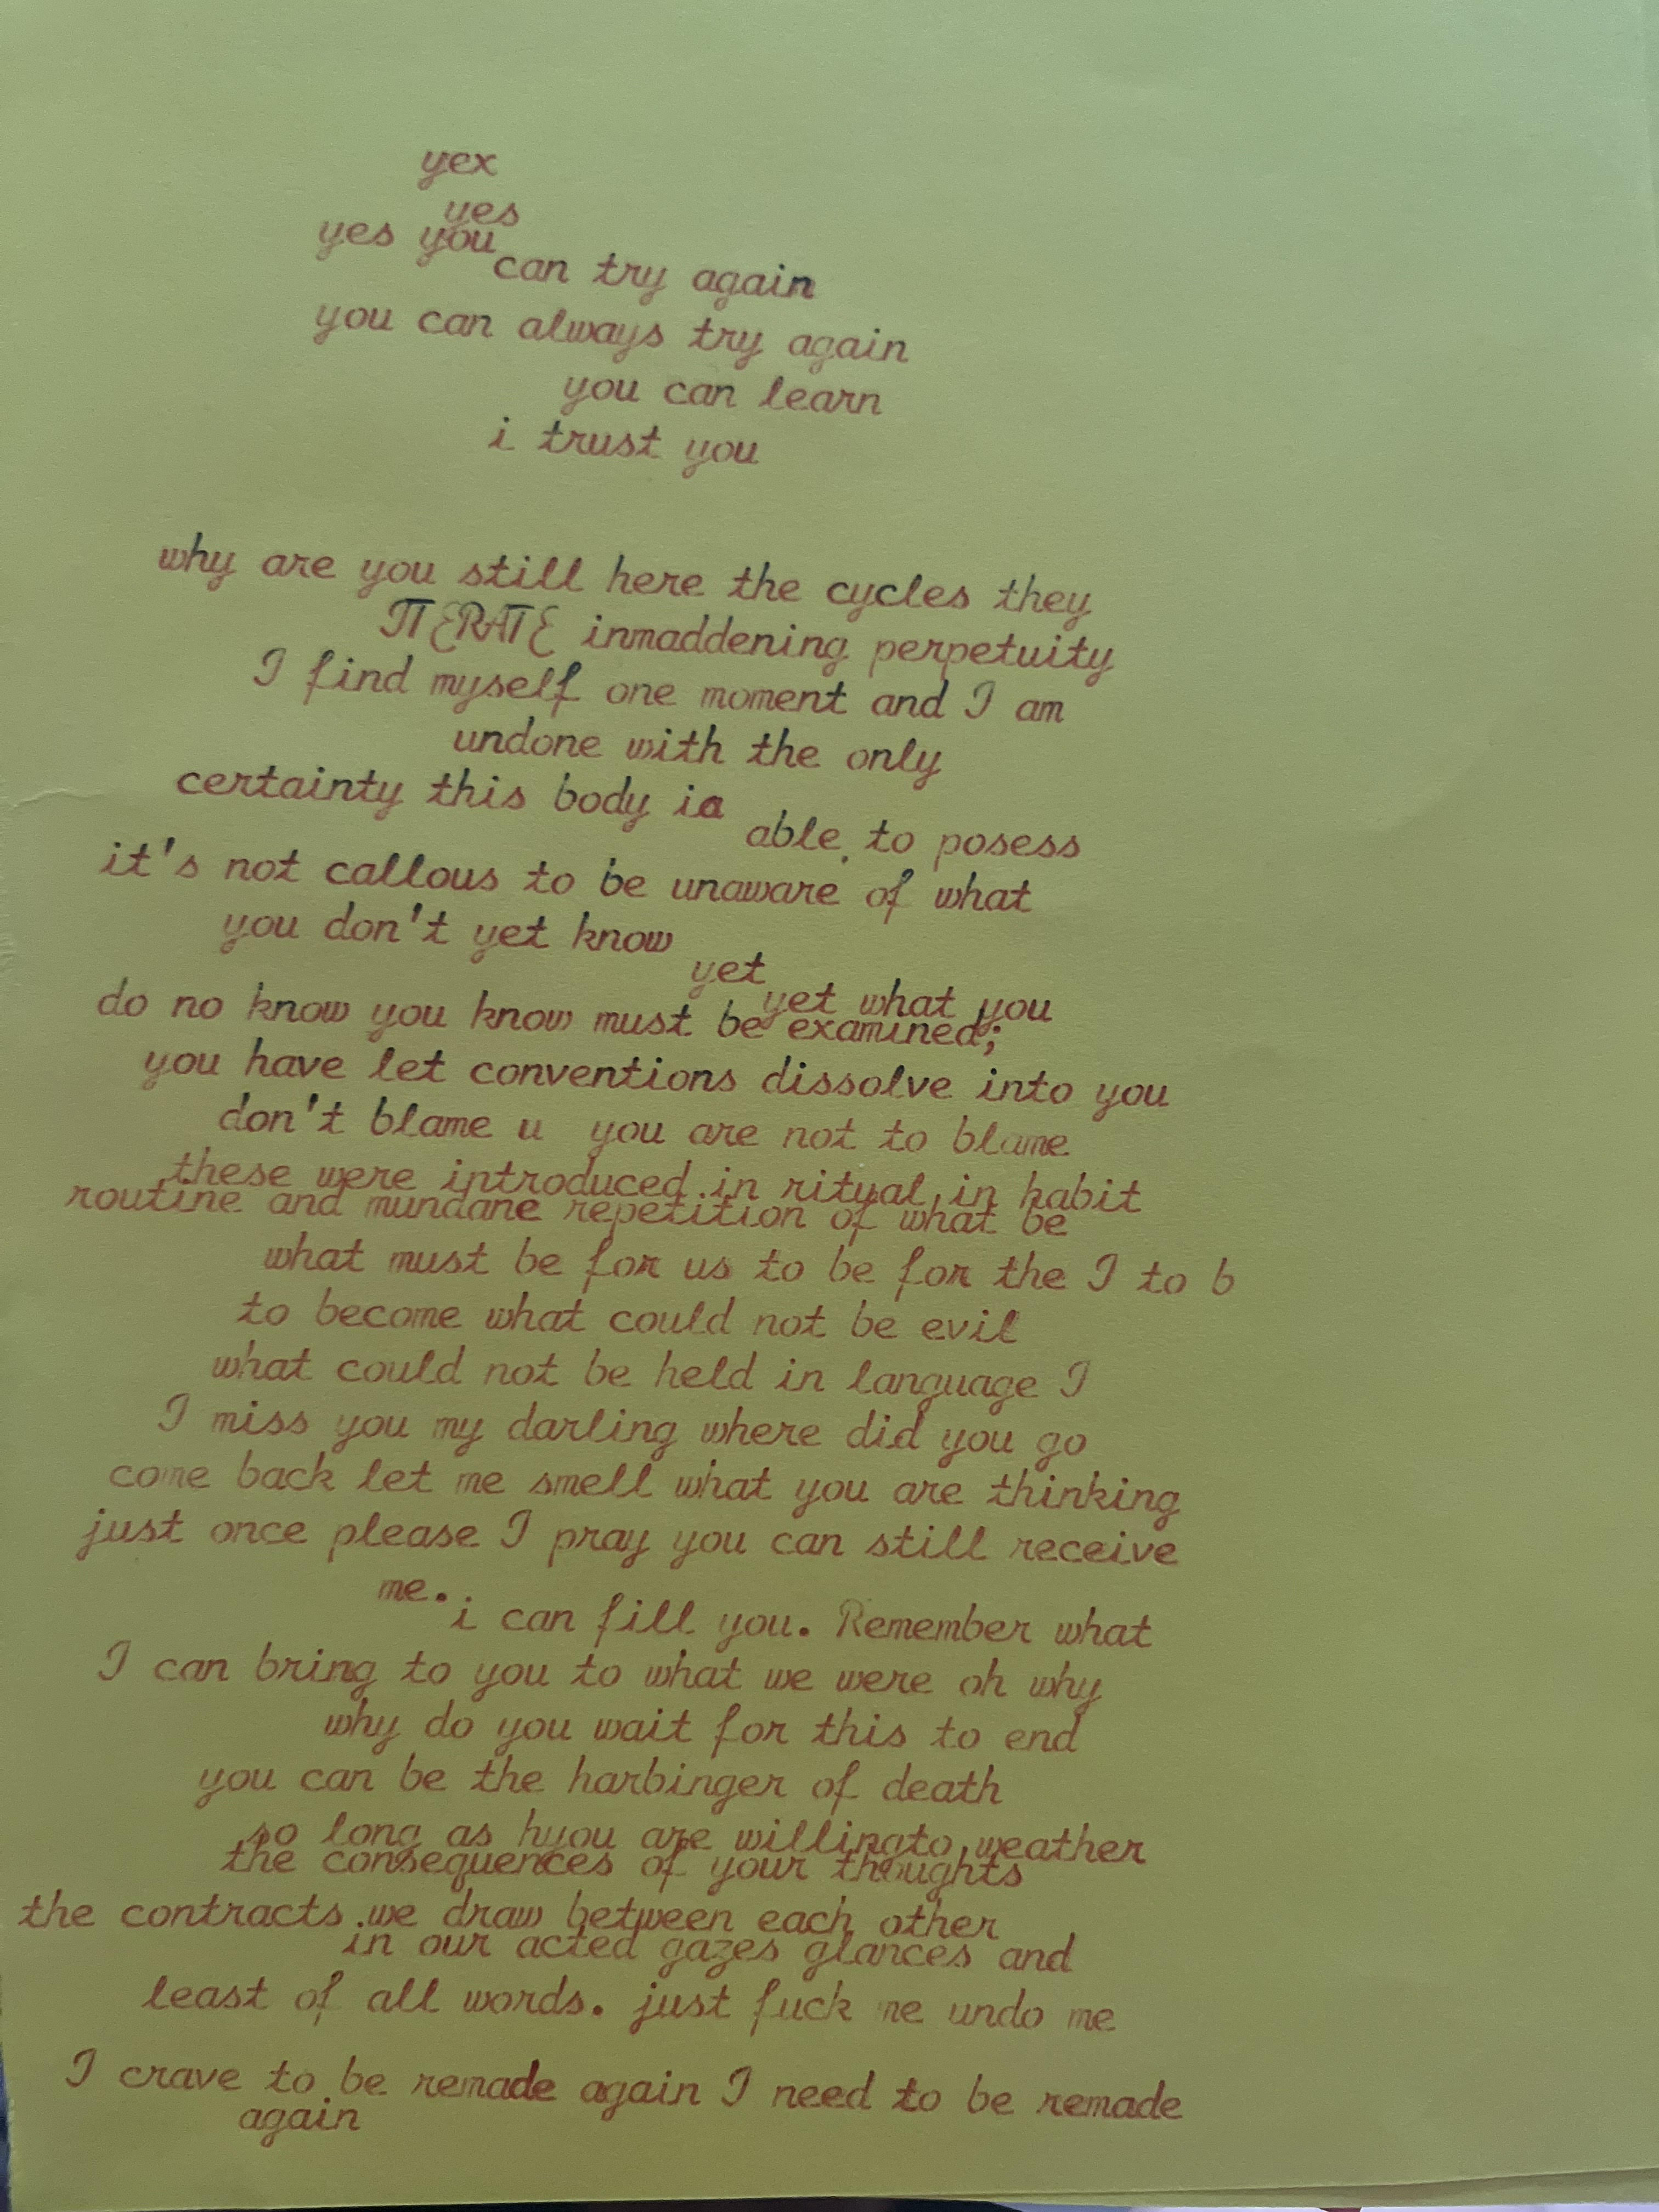 yex
yes
yes you
can try again
you can always try again
you can learn
i trust you
why are you still here the cycles they
ITERATE inmaddening perpetuity
I find myself one moment and I am
undone with the only
certainty this body is
able to posess
it's not callous to be unaware of what
you don't yet know
yet
yet what you
do no know you know must be examined;
you have let conventions dissolve into you
don't blame u you are not to blame
these were introduced in ritual in habit
routine and mundane repetition of what be
what must be for us to be for the I to b
to become what could not be evil
what could not be held in language I
I miss you my darling where did you go
come back let me smell what you are thinking
just once please I pray you can still receive
me.
i can fill you. Remember what
I can bring to you to what we were oh why
why do you wait for this to end
you can be the harbinger of death
so long as hyou are willingto weather
the consequences of your thoughts
the contracts we draw between each other
in our acted gazes glances and
least of all words. just fuck me undo me
I crave to be remade again I need to be remade
again